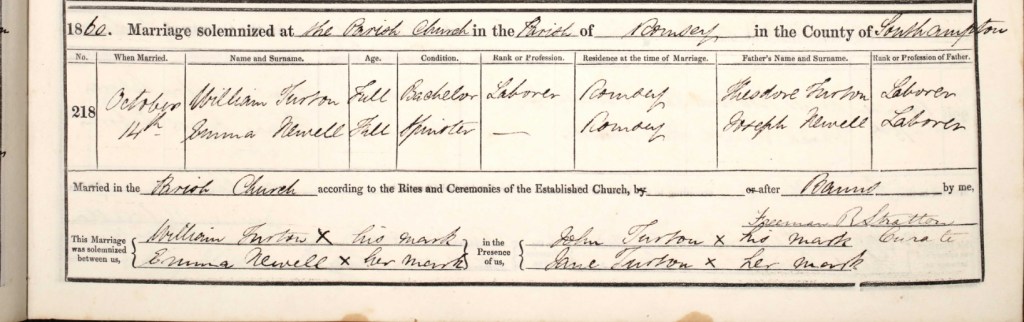 1860. Marriage solemnized at the Parish Church in the Parish of Romsey in the County of Southampton
No. When Married. Name and Surname. Age. Condition. Rank or Profession. Residence at the time of Marriage. Father's Name and Surname. Rank or Profession of Father.
218 October 14th William Turton Full Bachelor Laborer Romsey Theodore Turton Laborer
Emma Newell Full Spinster — Romsey Joseph Newell Laborer
Married in the Parish Church according to the Rites and Ceremonies of the Established Church, by or after Banns by me,
Freeman R Stratton
Curate
This Marriage was solemnized between us, William Turton x his mark in the Presence of us, John Turton x his mark
Emma Newell x her mark Jane Turton x her mark